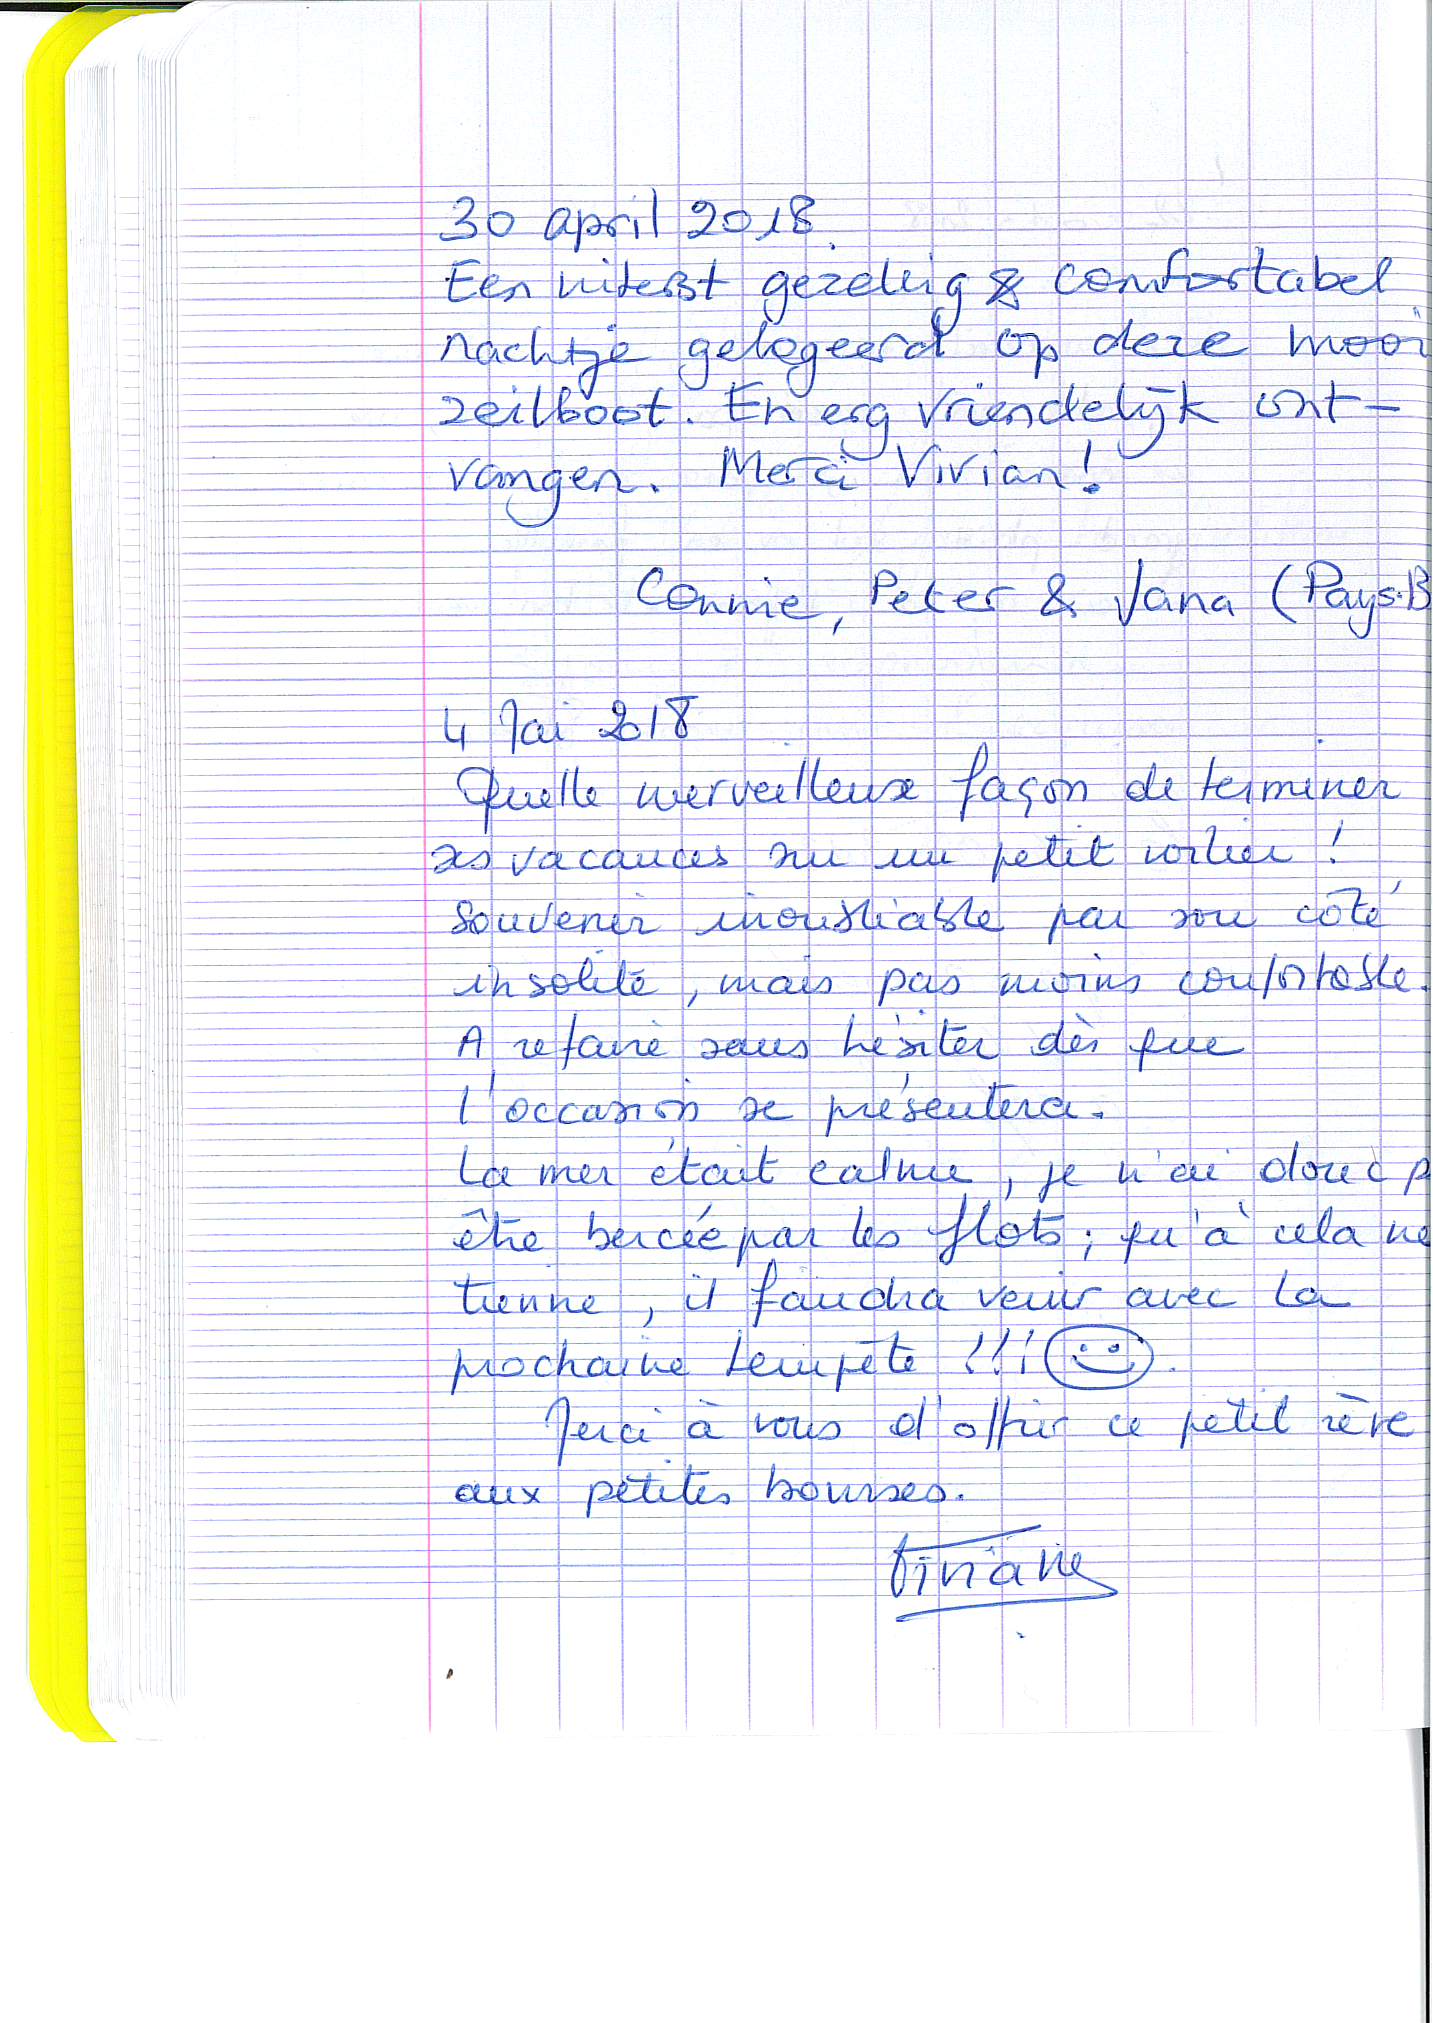 30 april 2018.
Een uiterst gezellig & comfortabel
nachtje gelogeerd op deze mooi
zeilboot. En erg vriendelijk ont-
vangen. Merci Vivian!
Connie, Peter & Jana (Pays-B
4 Mai 2018
Quelle merveilleuse façon de terminer
ses vacances sur un petit voilier !
Souvenir inoubliable par son côté
insolite, mais pas moins confortable.
A refaire sans hésiter dès que
l'occasion se présentera.
La mer était calme, je n'ai donc p
être bercée par les flots ; qu'à cela ne
tienne, il faudra venir avec la
prochaine tempête !!!
Merci à vous d'offrir ce petit rêve
aux petites bourses.
Viviane